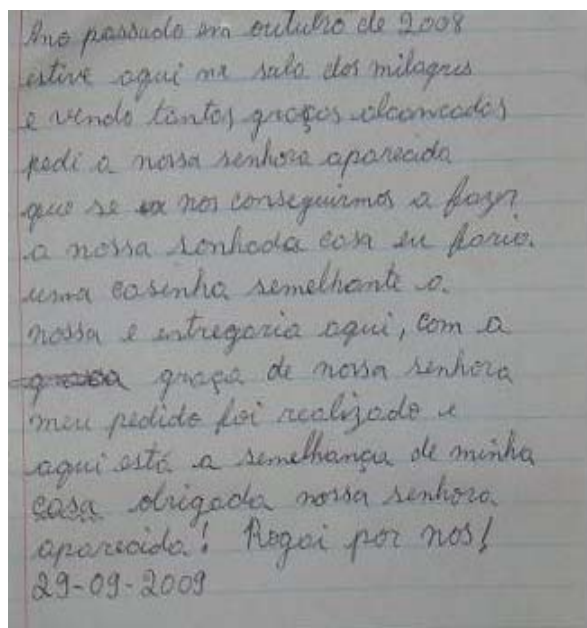 Ano passado em outubro de 2008
estive aqui na sala dos milagres
e vendo tantas graças alcancadas
pedi a nossa senhora aparecida
que se nos conseguirmos a fazer
a nossa sonhada casa eu faria.
uma casinha semelhante a.
nossa e entregaria aqui, com a
graça de nossa senhora
meu pedido foi realizado e
aqui está a semelhança de minha
casa obrigada nossa senhora
aparecida! Rogai por nos!
29-09-2009